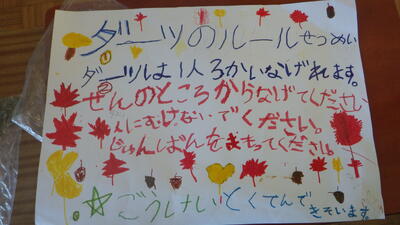 ダーツのルールせつめい
①ダーツは1人3かいなげれます。
②せんのところからなげてください
人にむけないでください。
じゅんばんをまもってください。
☆ごうけいとくてんで
きそいます。